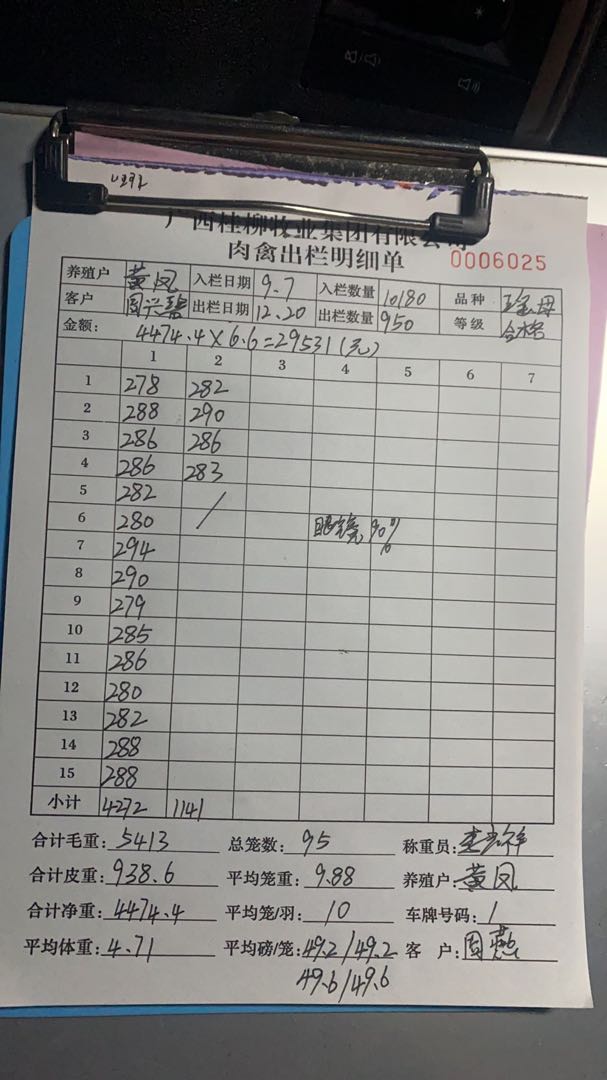 广西桂柳牧业集团有限公司
肉禽出栏明细单 0006025
养殖户 黄凤 入栏日期 9.7 入栏数量 10180 品种
客户 周兴碧 出栏日期 12.20 出栏数量 950 等级 合格
金额: 4474.4×6.6=29531(元)
1 2 3 4 5 6 7
1 278 282
2 288 290
3 286 286
4 286 283
5 282 /
6 280 90%
7 294
8 290
9 279
10 285
11 286
12 280
13 282
14 288
15 288
小计 4272 1141
合计毛重: 5413 总笼数: 95 称重员:
合计皮重: 938.6 平均笼重: 9.88 养殖户: 黄凤
合计净重: 4474.4 平均笼/羽: 10 车牌号码: 1
平均体重: 4.71 平均磅/笼: 49.2/49.2 客 户: 周燕
49.6/49.6